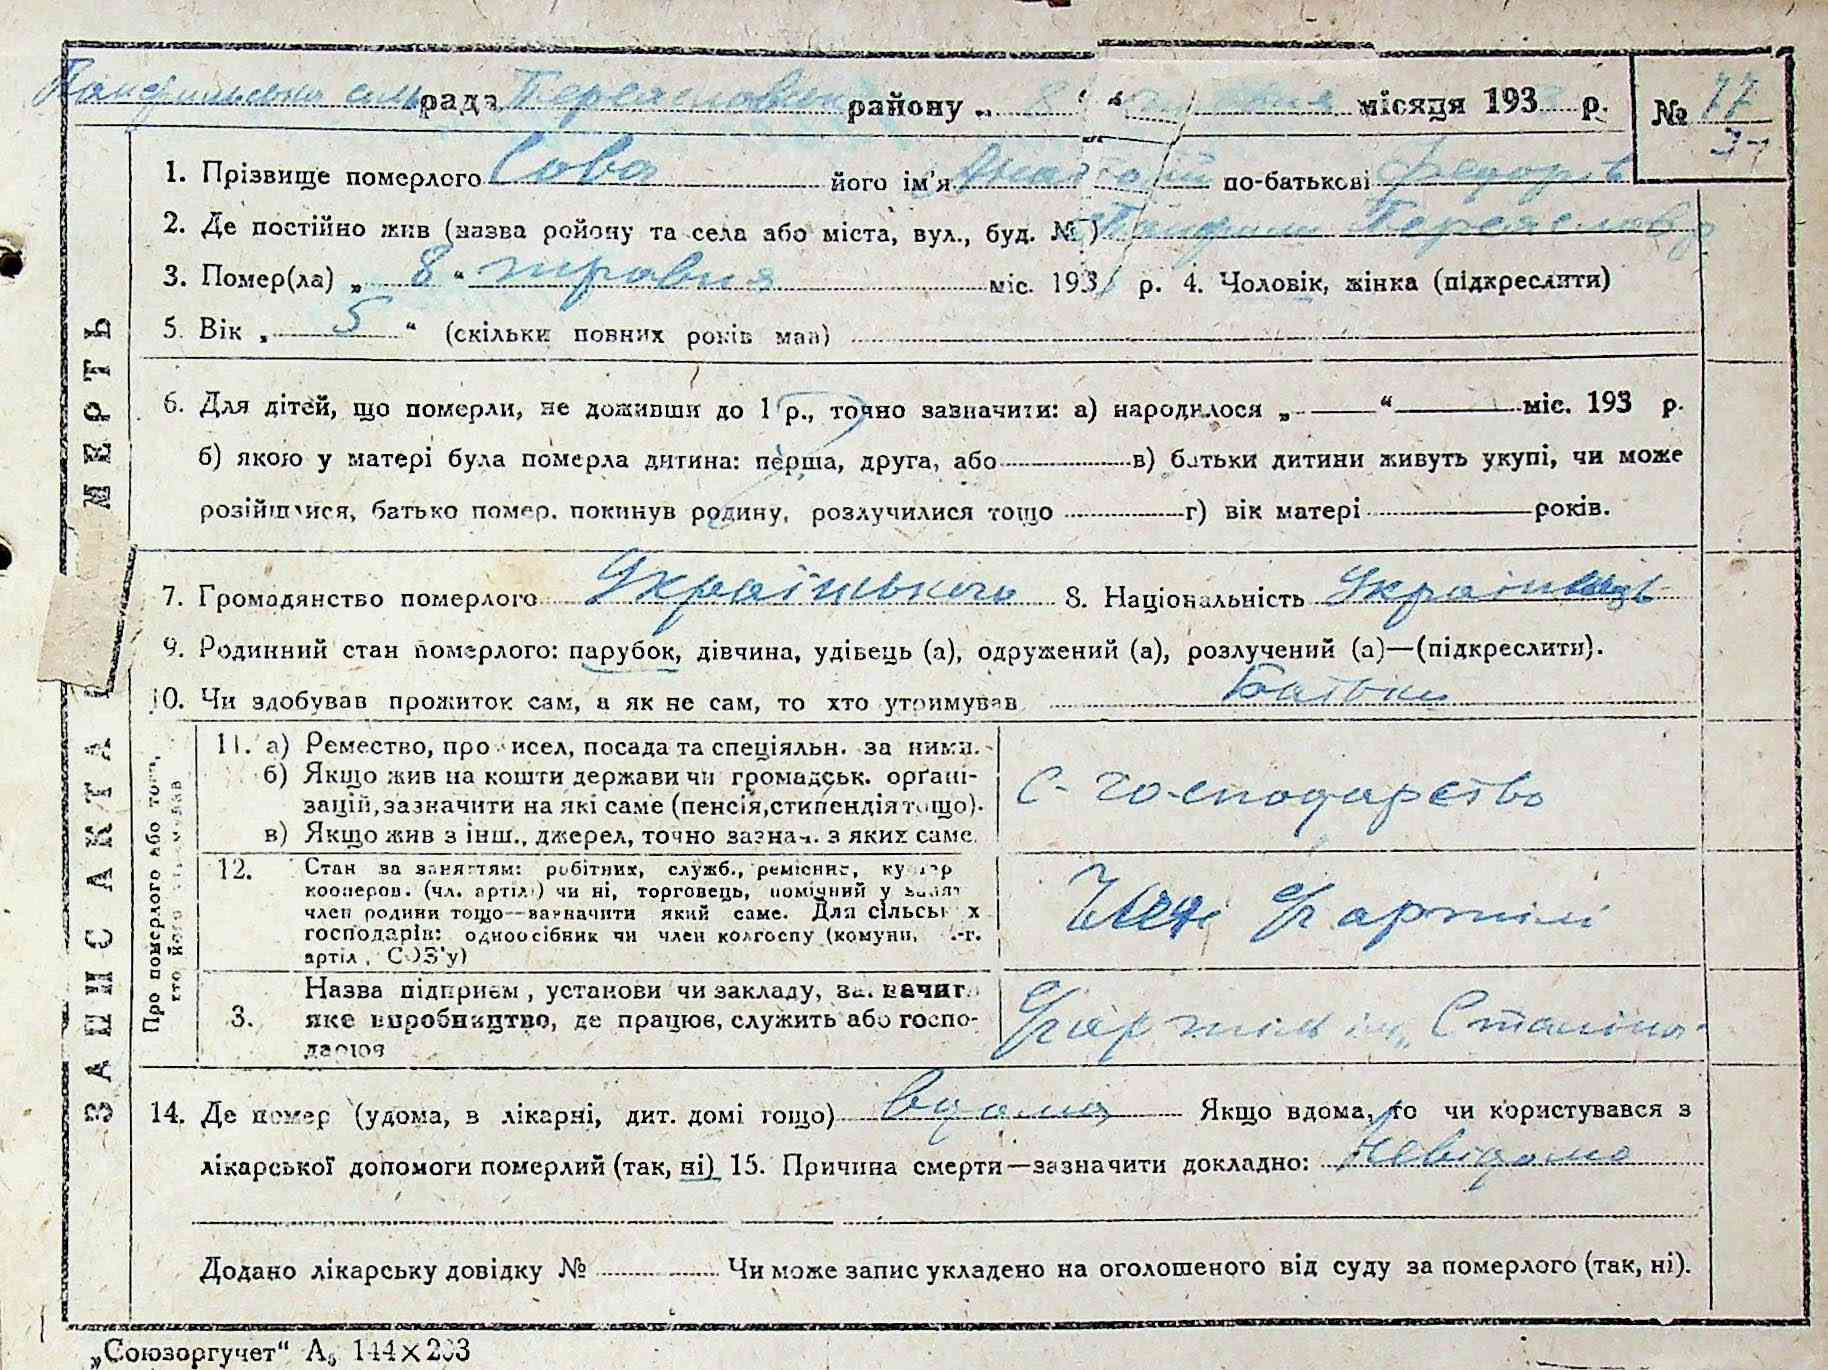 рада Переяславськ району „ 8 “ травня місяця 193 р. № 77
1. Прізвище померлого Сова його ім'я Анатолій по-батькові Федорів
2. Де постійно жив (назва ройону та села або міста, вул., буд. № ) Панфили Переяслав р
3. Помер(ла) „ 8 “ травня міс. 193 р. 4. Чоловік, жінка (підкреслити)
5. Вік „ 5 “ (скільки повних років мав)
6. Для дітей, що померли, не доживши до 1 р., точно зазначити: а) народилося „ — “ — міс. 193 р.
б) якою у матері була померла дитина: перша, друга, або в) батьки дитини живуть укупі, чи може
розійшлися, батько помер. покинув родину, розлучилися тощо г) вік матері років.
7. Громадянство померлого Українського 8. Національність Українець
9. Родинний стан померлого: парубок, дівчина, удівець (а), одружений (а), розлучений (а)—(підкреслити).
10. Чи здобував прожиток сам, а як не сам, то хто утримував Батьки
11. а) Ремество, промисел, посада та спеціяльн. за ними.
б) Якщо жив на кошти держави чи громадськ. орґані-
зацій, зазначити на які саме (пенсія, стипендія тощо).
в) Якщо жив з інш., джерел, точно зазнач. з яких саме.
С-господарство
12. Стан за заняттям: робітник, служб., ремісник,
кооперов. (чл. артілі) чи ні, торговець, помічний у
член родини тощо—зазначити який саме. Для сільських
господарів: одноосібник чи член колгоспу (комуни, с.-г.
артіл., СОЗ'у)
Член артілі
3. Назва підприєм., установи чи закладу, зазначити
яке виробництво, де працює, служить або госпо-
дарює
артіль ім. Сталіна
14. Де помер (удома, в лікарні, дит. домі тощо) вдома Якщо вдома, то чи користувався з
лікарської допомоги померлий (так, ні) 15. Причина смерти—зазначити докладно: Невідомо
Додано лікарську довідку № Чи може запис укладено на оголошеного від суду за померлого (так, ні).
ЗАПИС АКТА СМЕРТЬ
Про померлого або того,
хто його
„Союзоргучет“ А₅ 144×203